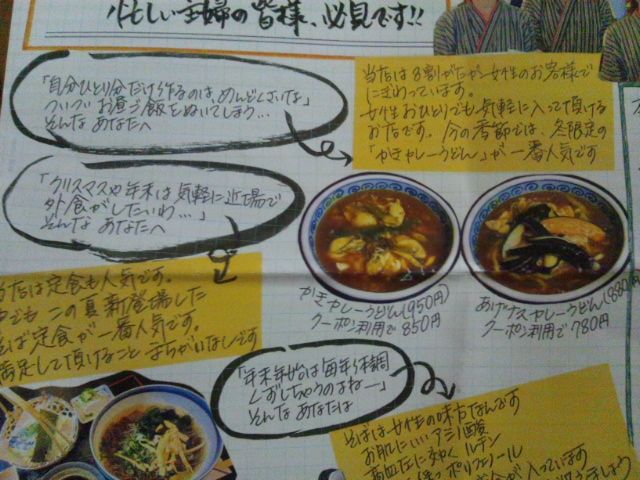 忙しい主婦の皆様、必見です!!
「自分ひとり分だけ作るのは、めんどくさいな」
ついつい お昼ご飯をぬいてしまう…
そんな あなたへ
当店は8割がたが女性のお客様で
にぎわっています。
女性おひとりでも気軽に入って頂ける
お店です。今の季節では、冬限定の
「かきカレーうどん」が一番人気です
「クリスマスや年末は気軽に近場で
外食がしたいわ…」
そんな あなたへ
当店は定食も人気です。
でも この夏新登場した
そば定食が一番人気です。
満足して頂けること まちがいなしです
かきカレーうどん(950円)
クーポン利用で850円
あげナスカレーうどん(880円)
クーポン利用で780円
「年末年始は毎年体調
くずしちゃうのよねー」
そんな あなたは
そばは女性の味方なんです
お肌にいいアミノ酸
高血圧に効く ルテン
ポリフェノール
が入っています